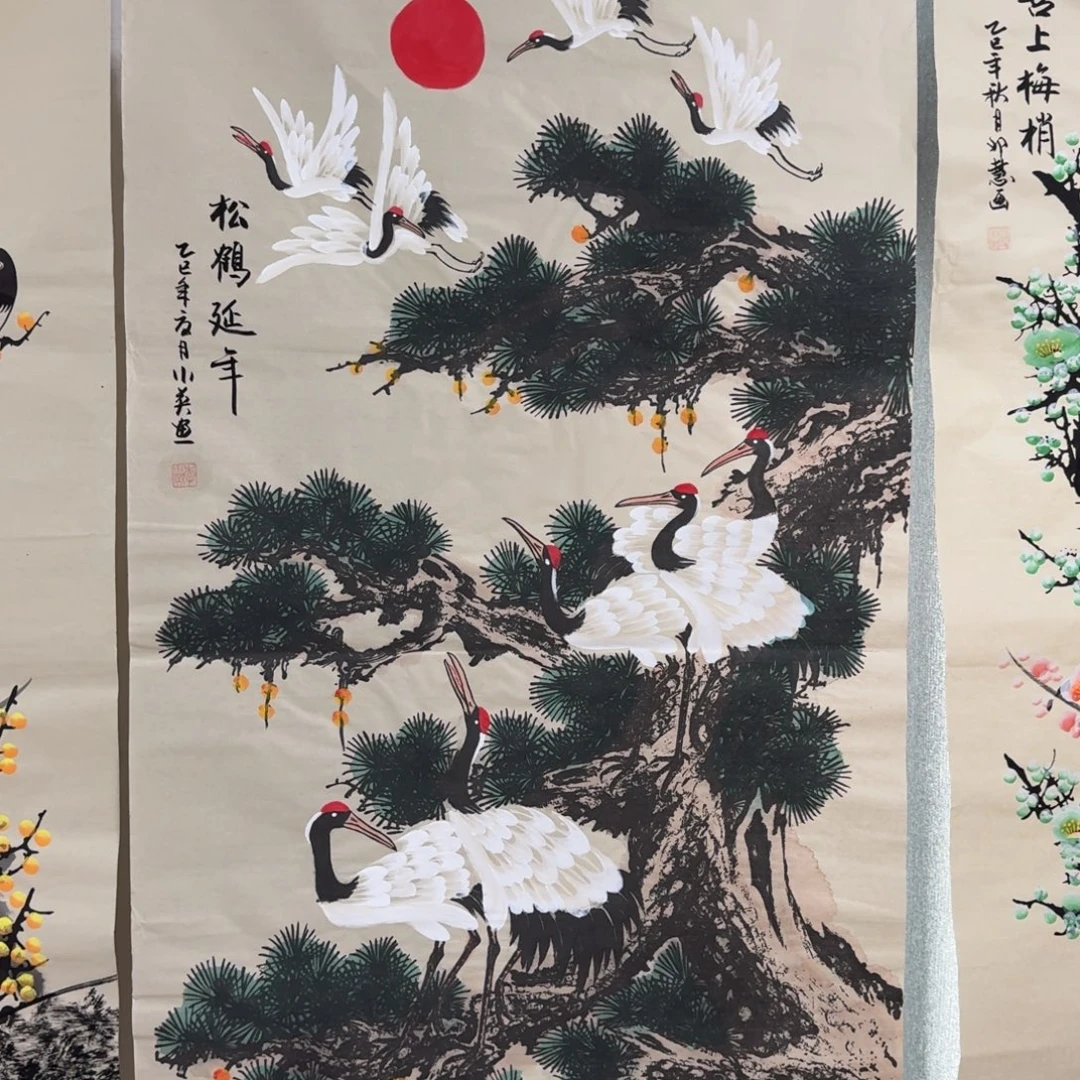 松鹤延年
乙巳年方月小英画
上梅梢
乙巳年秋月卯慧画